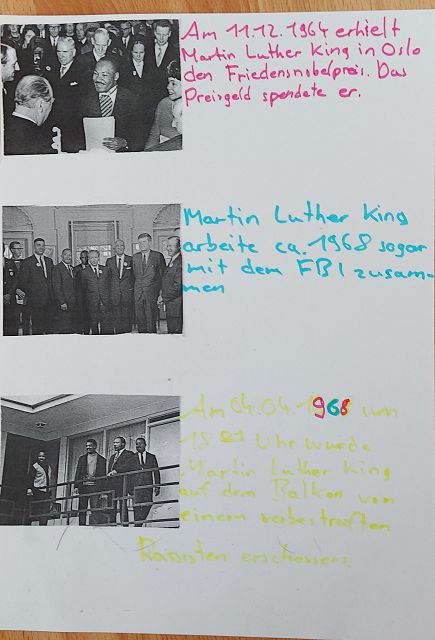 Am 11.12.1964 erhielt
Martin Luther King in Oslo
den Friedensnobelpreis. Das
Preisgeld spendete er.
Martin Luther King
arbeite ca. 1968 sogar
mit dem FBI zusam-
men
Am 04.04.1968 um
18 01 Uhr wurde
Martin Luther King
auf dem Balkon von
einem vorbestraften
Rassisten erschossen.